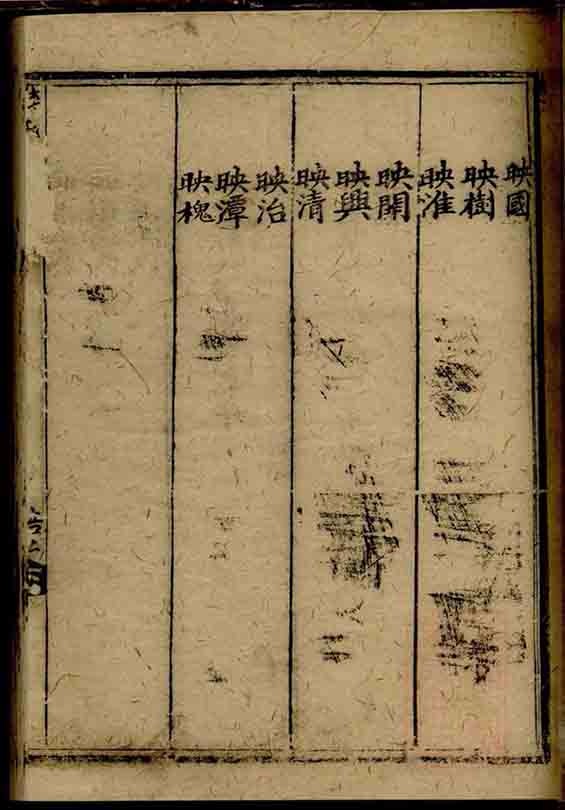 映國
映樹
映淮
映開
映興
映清
映治
映潭
映槐